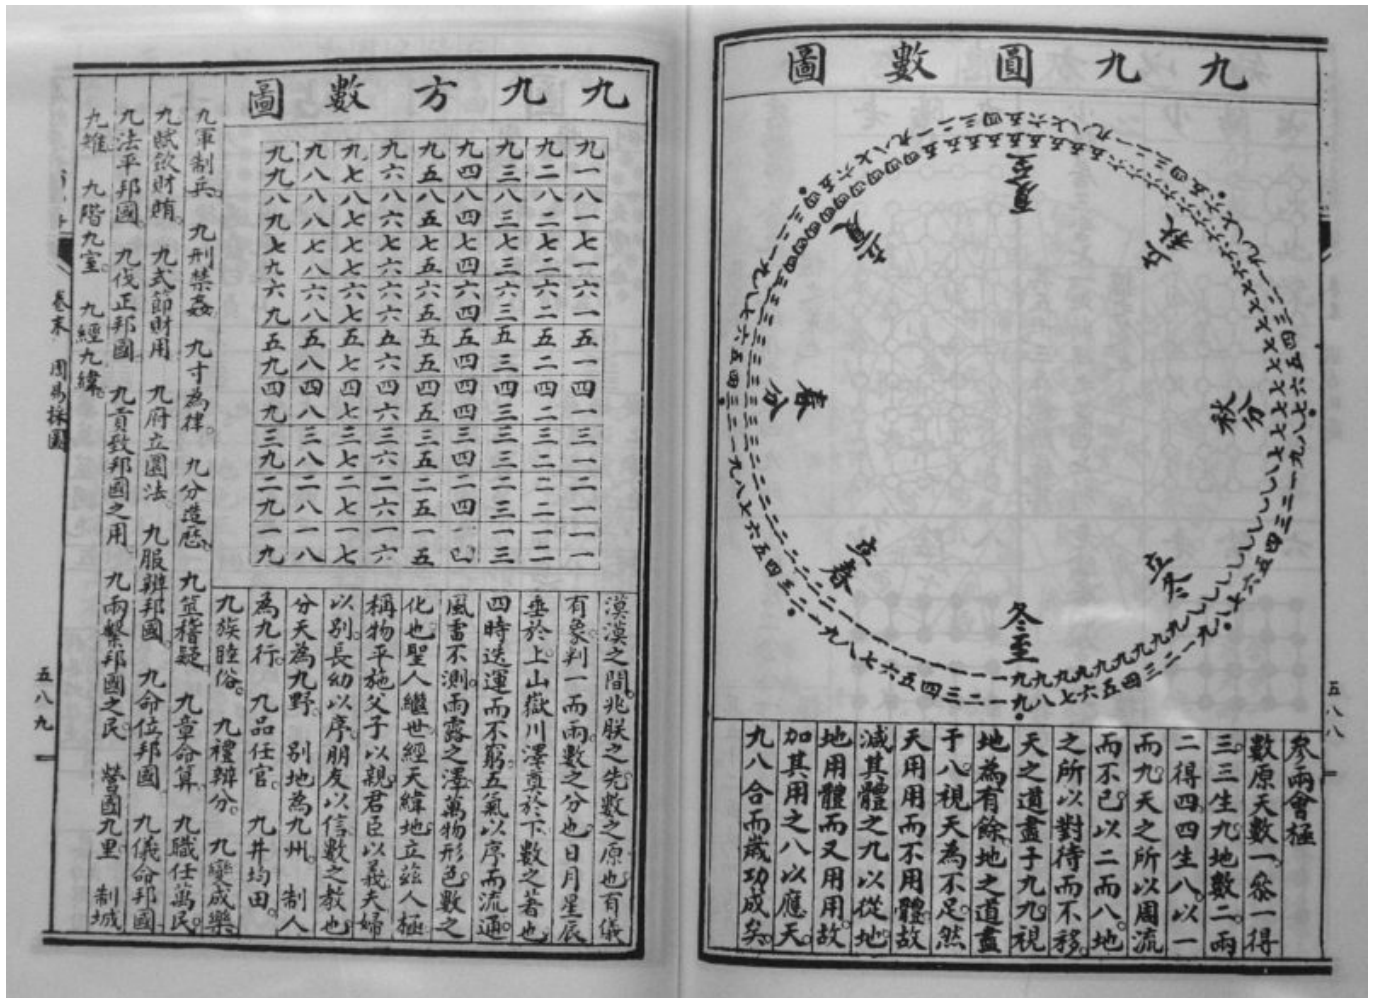 九九圓數圖
夏至
立秋
秋分
立冬
冬至
立春
春分
立夏
參兩會極
數原天數一。參一得
三。三生九。地數二。兩
二得四。四生八。以一
而九。天之所以周流
而不已。以二而八。地
之所以對待而不移。
天之道盡于九。九視
地為有餘。地之道盡
于八。視天為不足。然
天用用而不用體。故
減其體之九以從地。
地用體而又用用。故
加其用之八以應天。
九八合而歲功成矣。
五八八
九九方數圖
九一八一七一六一五一四一三一二一一一
九二八二七二六二五二四二三二二二一二
九三八三七三六三五三四三三三二三一三
九四八四七四六四五四四四三四二四一四
九五八五七五六五五五四五三五二五一五
九六八六七六六六五六四六三六二六一六
九七八七七七六七五七四七三七二七一七
九八八八七八六八五八四八三八二八一八
九九八九七九六九五九四九三九二九一九
漠漠之間。兆朕之先。數之原也。有儀
有象。判一而兩。數之分也。日月星辰
垂於上。山嶽川澤奠於下。數之著也。
四時迭運而不窮。五氣以序而流通。
風雷不測。雨露之澤。萬物形色。數之
化也。聖人繼世。經天緯地。立茲人極。
稱物平施。父子以親。君臣以義。夫婦
以別。長幼以序。朋友以信。數之教也。
分天為九野。別地為九州。制人
為九行。九品任官。九井均田。
九族睦俗。九禮辨分。九變成樂
九軍制兵。九刑禁姦 九寸為律。九分造曆。九筮稽疑 九章命算 九職任萬民。
九賦斂財賄。九式節財用 九府立圜法。九服辨邦國。九命位邦國 九儀命邦國
九法平邦國。九伐正邦國 九貢致邦國之用。九兩繫邦國之民 營國九里 制城
九雉 九階九室。九經九緯。
卷末 周易採圖
五八九